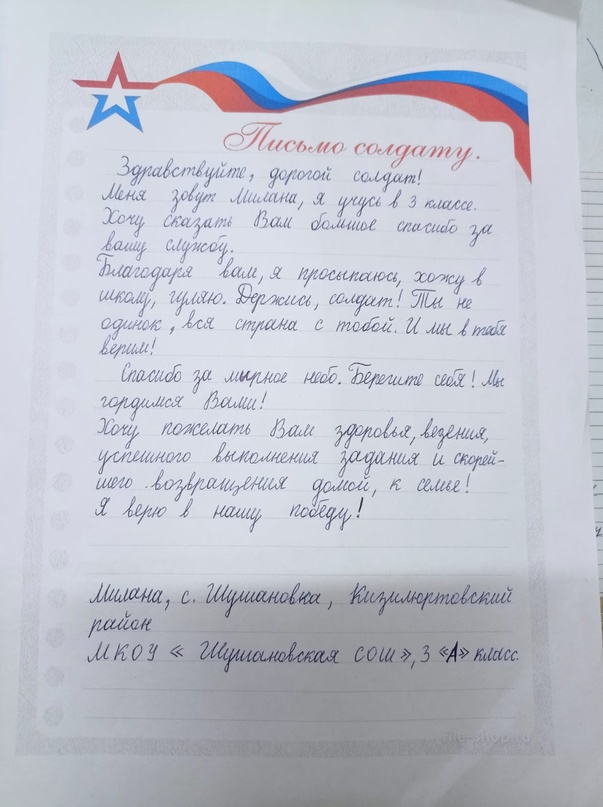 Письмо солдату.
Здравствуйте, дорогой солдат!
Меня зовут Милана, я учусь в 3 классе.
Хочу сказать Вам большое спасибо за
вашу службу.
Благодаря вам, я просыпаюсь, хожу в
школу, гуляю. Держись, солдат! Ты не
одинок, вся страна с тобой. И мы в тебя
верим!
Спасибо за мырное небо. Берегите себя! Мы
гордимся Вами!
Хочу пожелать Вам здоровья, везения,
успешного выполнения задания и скорей-
шего возвращения домой, к семье!
Я верю в нашу победу!
Милана, с. Шушановка, Кизилюртовский
район
МКОУ « Шушановская СОШ», 3 «А» класс.
file-shop.ru